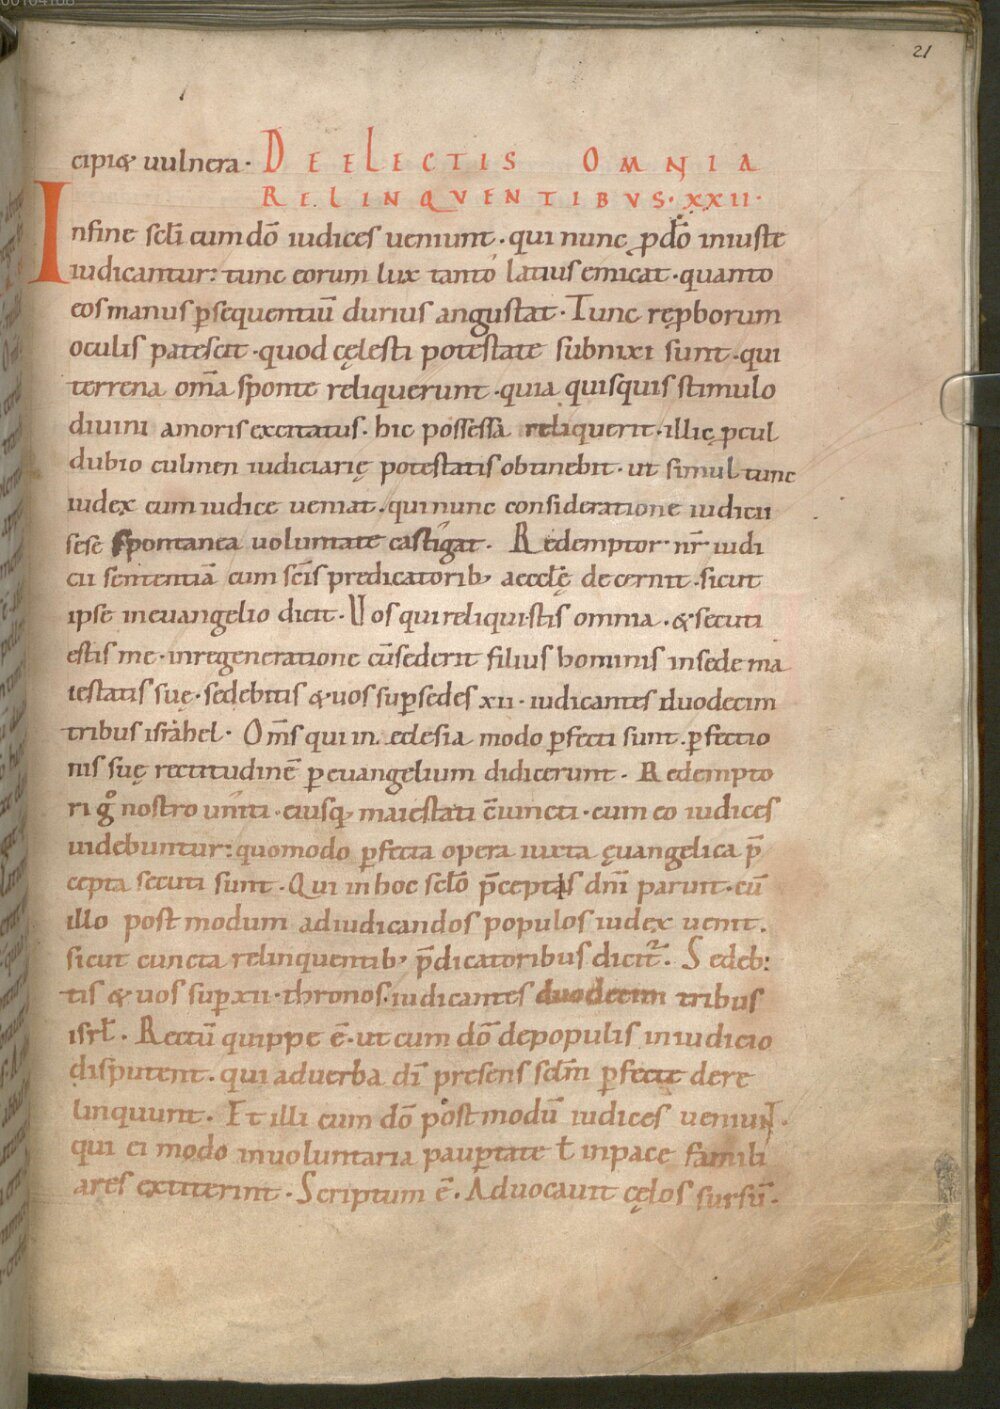 21
cipiæ uulnera. DE ELECTIS OMNIA
RELINQVENTIBVS. XXII.
Infine scłi cum dō iudices ueniunt. qui nunc ꝓ dō iniuste
iudicantur: tunc eorum lux tanto latius emicat. quanto
eos manus ꝑsequentiū durius angustat. Tunc reꝓborum
oculis patescit. quod cęlesti potestate subnixi sunt. qui
terrena om̄a sponte reliquerunt. quia quisquis stimulo
diuini amoris excitatus. hic possessa reliquerit. illic ꝓcul
dubio culmen iudiciarię potestatis obtinebit. ut simul tunc
iudex cum iudice ueniat. qui nunc consideratione iudicii
sese spontanea uoluntate castigat. Redemptor nr̄ iudi
cii sententiā cum sc̄is predicatorib; aecclę̄ decernit. sicut
ipse ineuangelio dicit. Vos qui reliquistis omnia. & secuti
estis me. inregeneratione cū sederit filius hominis insede ma
iestatis suę. sedebitis & uos suꝑ sedes xii. iudicantes duodecim
tribus israhel. Om̄s qui in eclesia modo ꝑfecti sunt. ꝑfectio
nis suę rectitudinē ꝑ euangelium didicerunt. Redempto
ri gͦ nostro uniti. eiusq; maiestati c̄iuncti. cum eo iudices
uidebuntur: quomodo ꝑfecta opera iuxta ęuangelica p̄
cepta secuti sunt. Qui in hoc scło p̄ceptis dn̄i paruit. cū
illo post modum adiudicandos populos iudex uenit.
sicut cuncta relinquentib; p̄dicatoribus dicit᷑. Sedeb:
tis & uos suꝑ xii. thronos. iudicantes duodecim tribus
isrł. Rectū quippe ē. ut cum dō depopulis in iudicio
disputent. qui aduerba dī presens scłm ꝑfecte dere
linquunt. Et illi cum dō post modū iudices ueniunt.
qui ei modo inuoluntaria pauꝑtate ł inpace famili
ares extiterint. Scriptum ē. Aduocauit cęlos sursū.